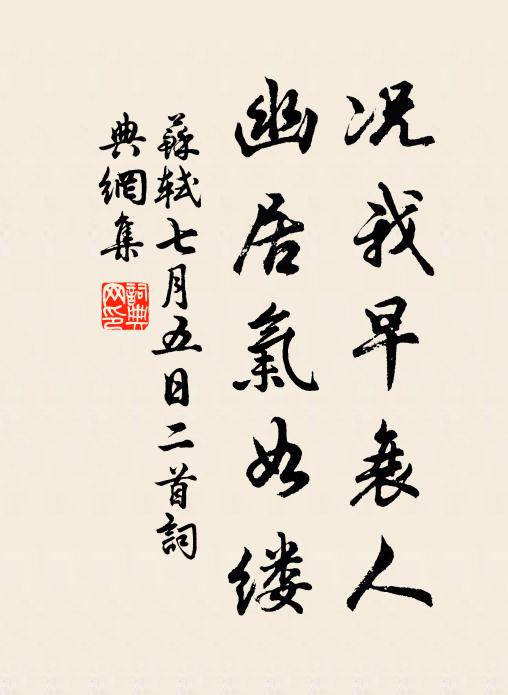 况我早衰人
幽居氣如缕
蘇軾七月五日二首詞
典網集
詞典网印